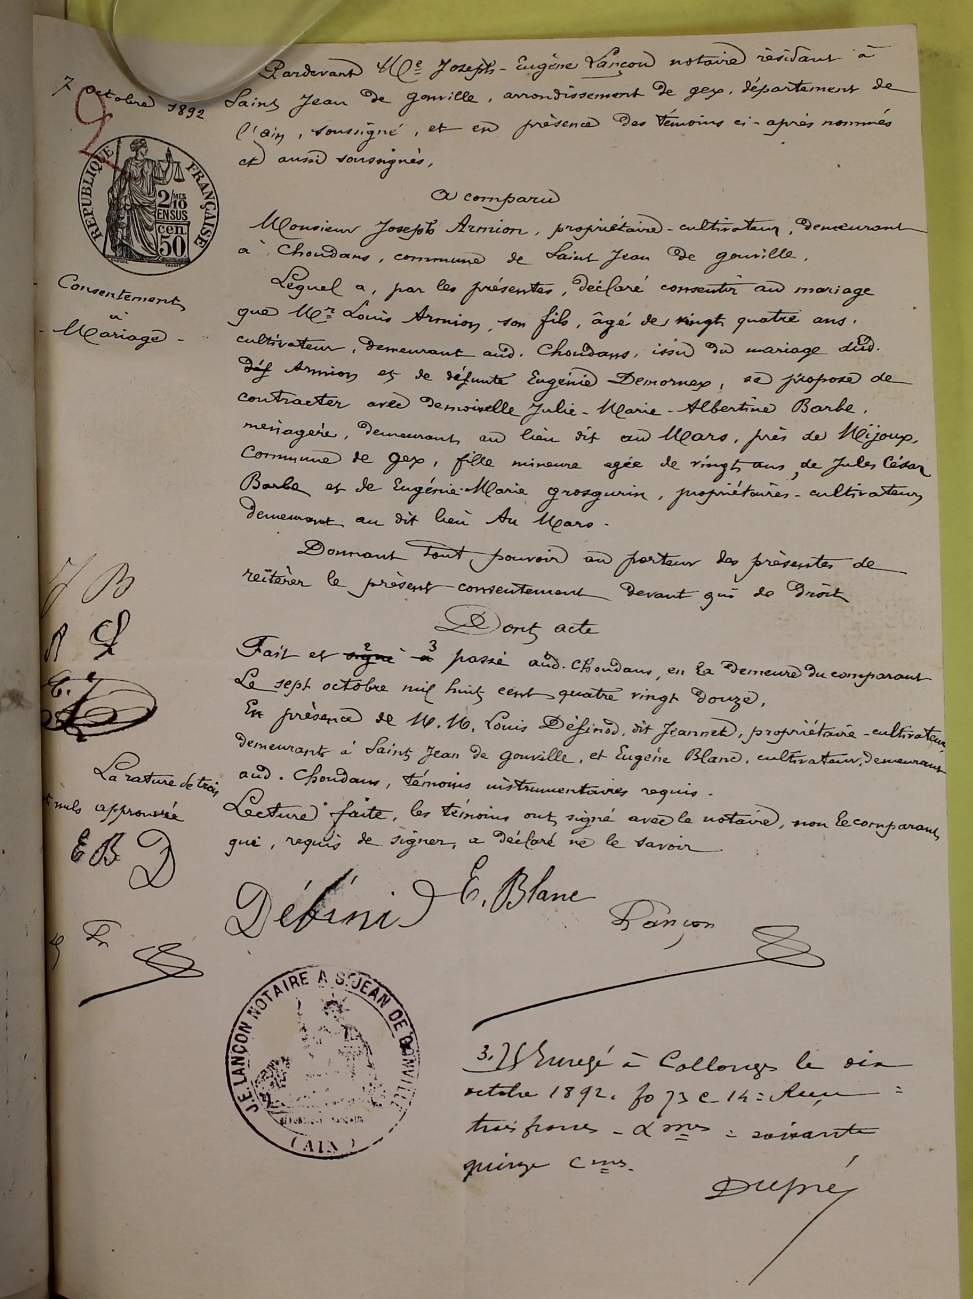 7 octobre 1892
2
RÉPUBLIQUE FRANÇAISE
2/10 MES
EN SUS
50 cen
Consentement
à
Mariage
Pardevant Me Joseph-Eugène Lançon notaire résidant à
Saint Jean de gonville, arrondissement de gex, département de
l'ain, soussigné, et en présence des témoins ci-après nommés
et aussi soussignés,
a comparu
Monsieur Joseph Armion, propriétaire-cultivateur, demeurant
à Choudans, commune de Saint Jean de gonville,
Lequel a, par les présentes, déclaré consentir au mariage
que Mr Louis Armion, son fils, âgé de vingt quatre ans,
cultivateur, demeurant aud. Choudans, issu du mariage dud.
Armion et de défunte Eugénie Demornex, se propose de
contracter avec demoiselle Julie-Marie-Albertine Barbe,
ménagère, demeurant au lieu dit au Mars, près de Mijoux,
commune de gex, fille mineure agée de vingt ans, de Jules César
Barbe et de Eugénie-Marie grosgurin, propriétaires-cultivateurs
demeurant au dit lieu Au Mars.
Donnant tout pouvoir au porteur des présentes de
réitérer le présent consentement devant qui de droit
Dont acte
Fait et signé à passé aud. Choudans, en la demeure du comparant
Le sept octobre mil huit cent quatre vingt douze,
En présence de M.M. Louis Définod, dit Jeannet, propriétaire-cultivateur,
demeurant à Saint Jean de gonville, et Eugène Blanc, cultivateur, demeurant
aud. Choudans, témoins instrumentaires requis.
Lecture faite, les témoins ont signé avec le notaire, non le comparant
qui, requis de signer, a déclaré ne le savoir.
La rature de trois
mots nuls approuvée
E B D
Définod E. Blanc
Lançon
J.E. LANÇON NOTAIRE A ST JEAN DE GONVILLE
(AIN)
3,75 Enregé à Collonges le dix
octobre 1892, fo 73 c 14 = Reçu
trois francs - Xmes = soixante
quinze cmes.
Dupré